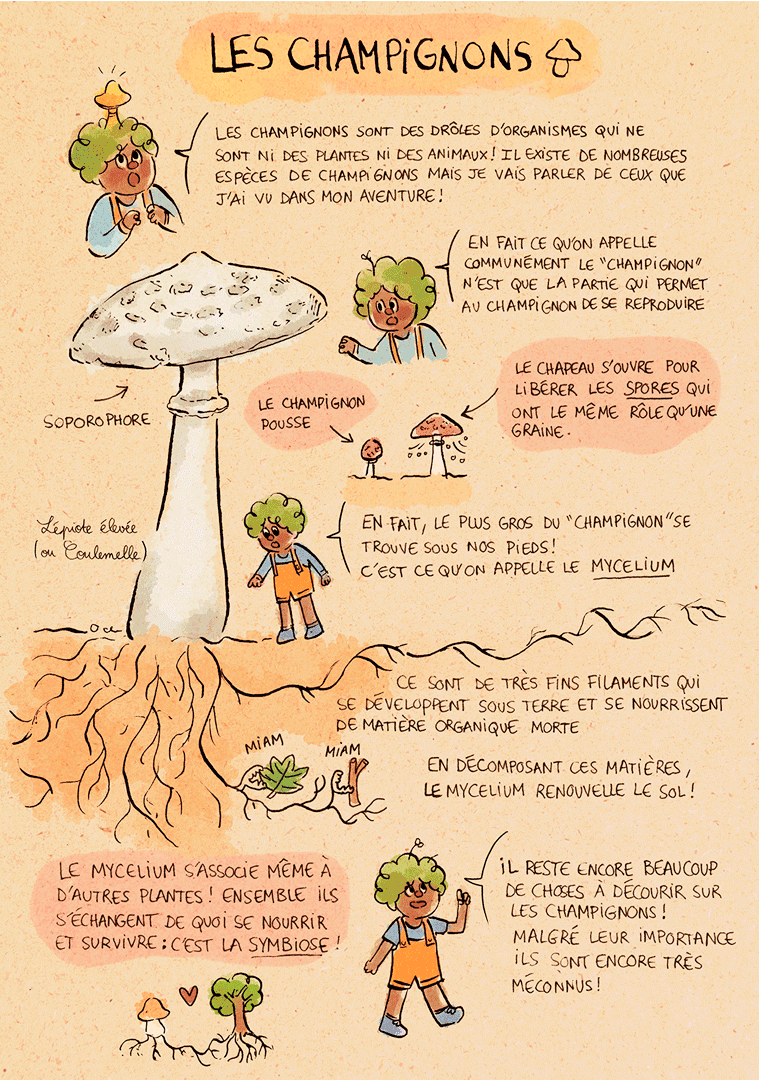 LES CHAMPIGNONS
LES CHAMPIGNONS SONT DES DRÔLES D'ORGANISMES QUI NE
SONT NI DES PLANTES NI DES ANIMAUX! IL EXISTE DE NOMBREUSES
ESPÈCES DE CHAMPIGNONS MAIS JE VAIS PARLER DE CEUX QUE
J'AI VU DANS MON AVENTURE!
EN FAIT CE QU'ON APPELLE
COMMUNÉMENT LE "CHAMPIGNON"
N'EST QUE LA PARTIE QUI PERMET
AU CHAMPIGNON DE SE REPRODUIRE
SOPOROPHORE
LE CHAMPIGNON
POUSSE
LE CHAPEAU S'OUVRE POUR
LIBÉRER LES SPORES QUI
ONT LE MÊME RÔLE QU'UNE
GRAINE.
Lépiote élevée
(ou Coulemelle)
EN FAIT, LE PLUS GROS DU "CHAMPIGNON" SE
TROUVE SOUS NOS PIEDS!
C'EST CE QU'ON APPELLE LE MYCELIUM
CE SONT DE TRÈS FINS FILAMENTS QUI
SE DÉVELOPPENT SOUS TERRE ET SE NOURRISSENT
DE MATIÈRE ORGANIQUE MORTE
MIAM
MIAM
EN DÉCOMPOSANT CES MATIÈRES,
LE MYCELIUM RENOUVELLE LE SOL!
LE MYCELIUM S'ASSOCIE MÊME À
D'AUTRES PLANTES! ENSEMBLE ILS
S'ÉCHANGENT DE QUOI SE NOURRIR
ET SURVIVRE; C'EST LA SYMBIOSE!
IL RESTE ENCORE BEAUCOUP
DE CHOSES À DÉCOURIR SUR
LES CHAMPIGNONS!
MALGRÉ LEUR IMPORTANCE
ILS SONT ENCORE TRÈS
MÉCONNUS!